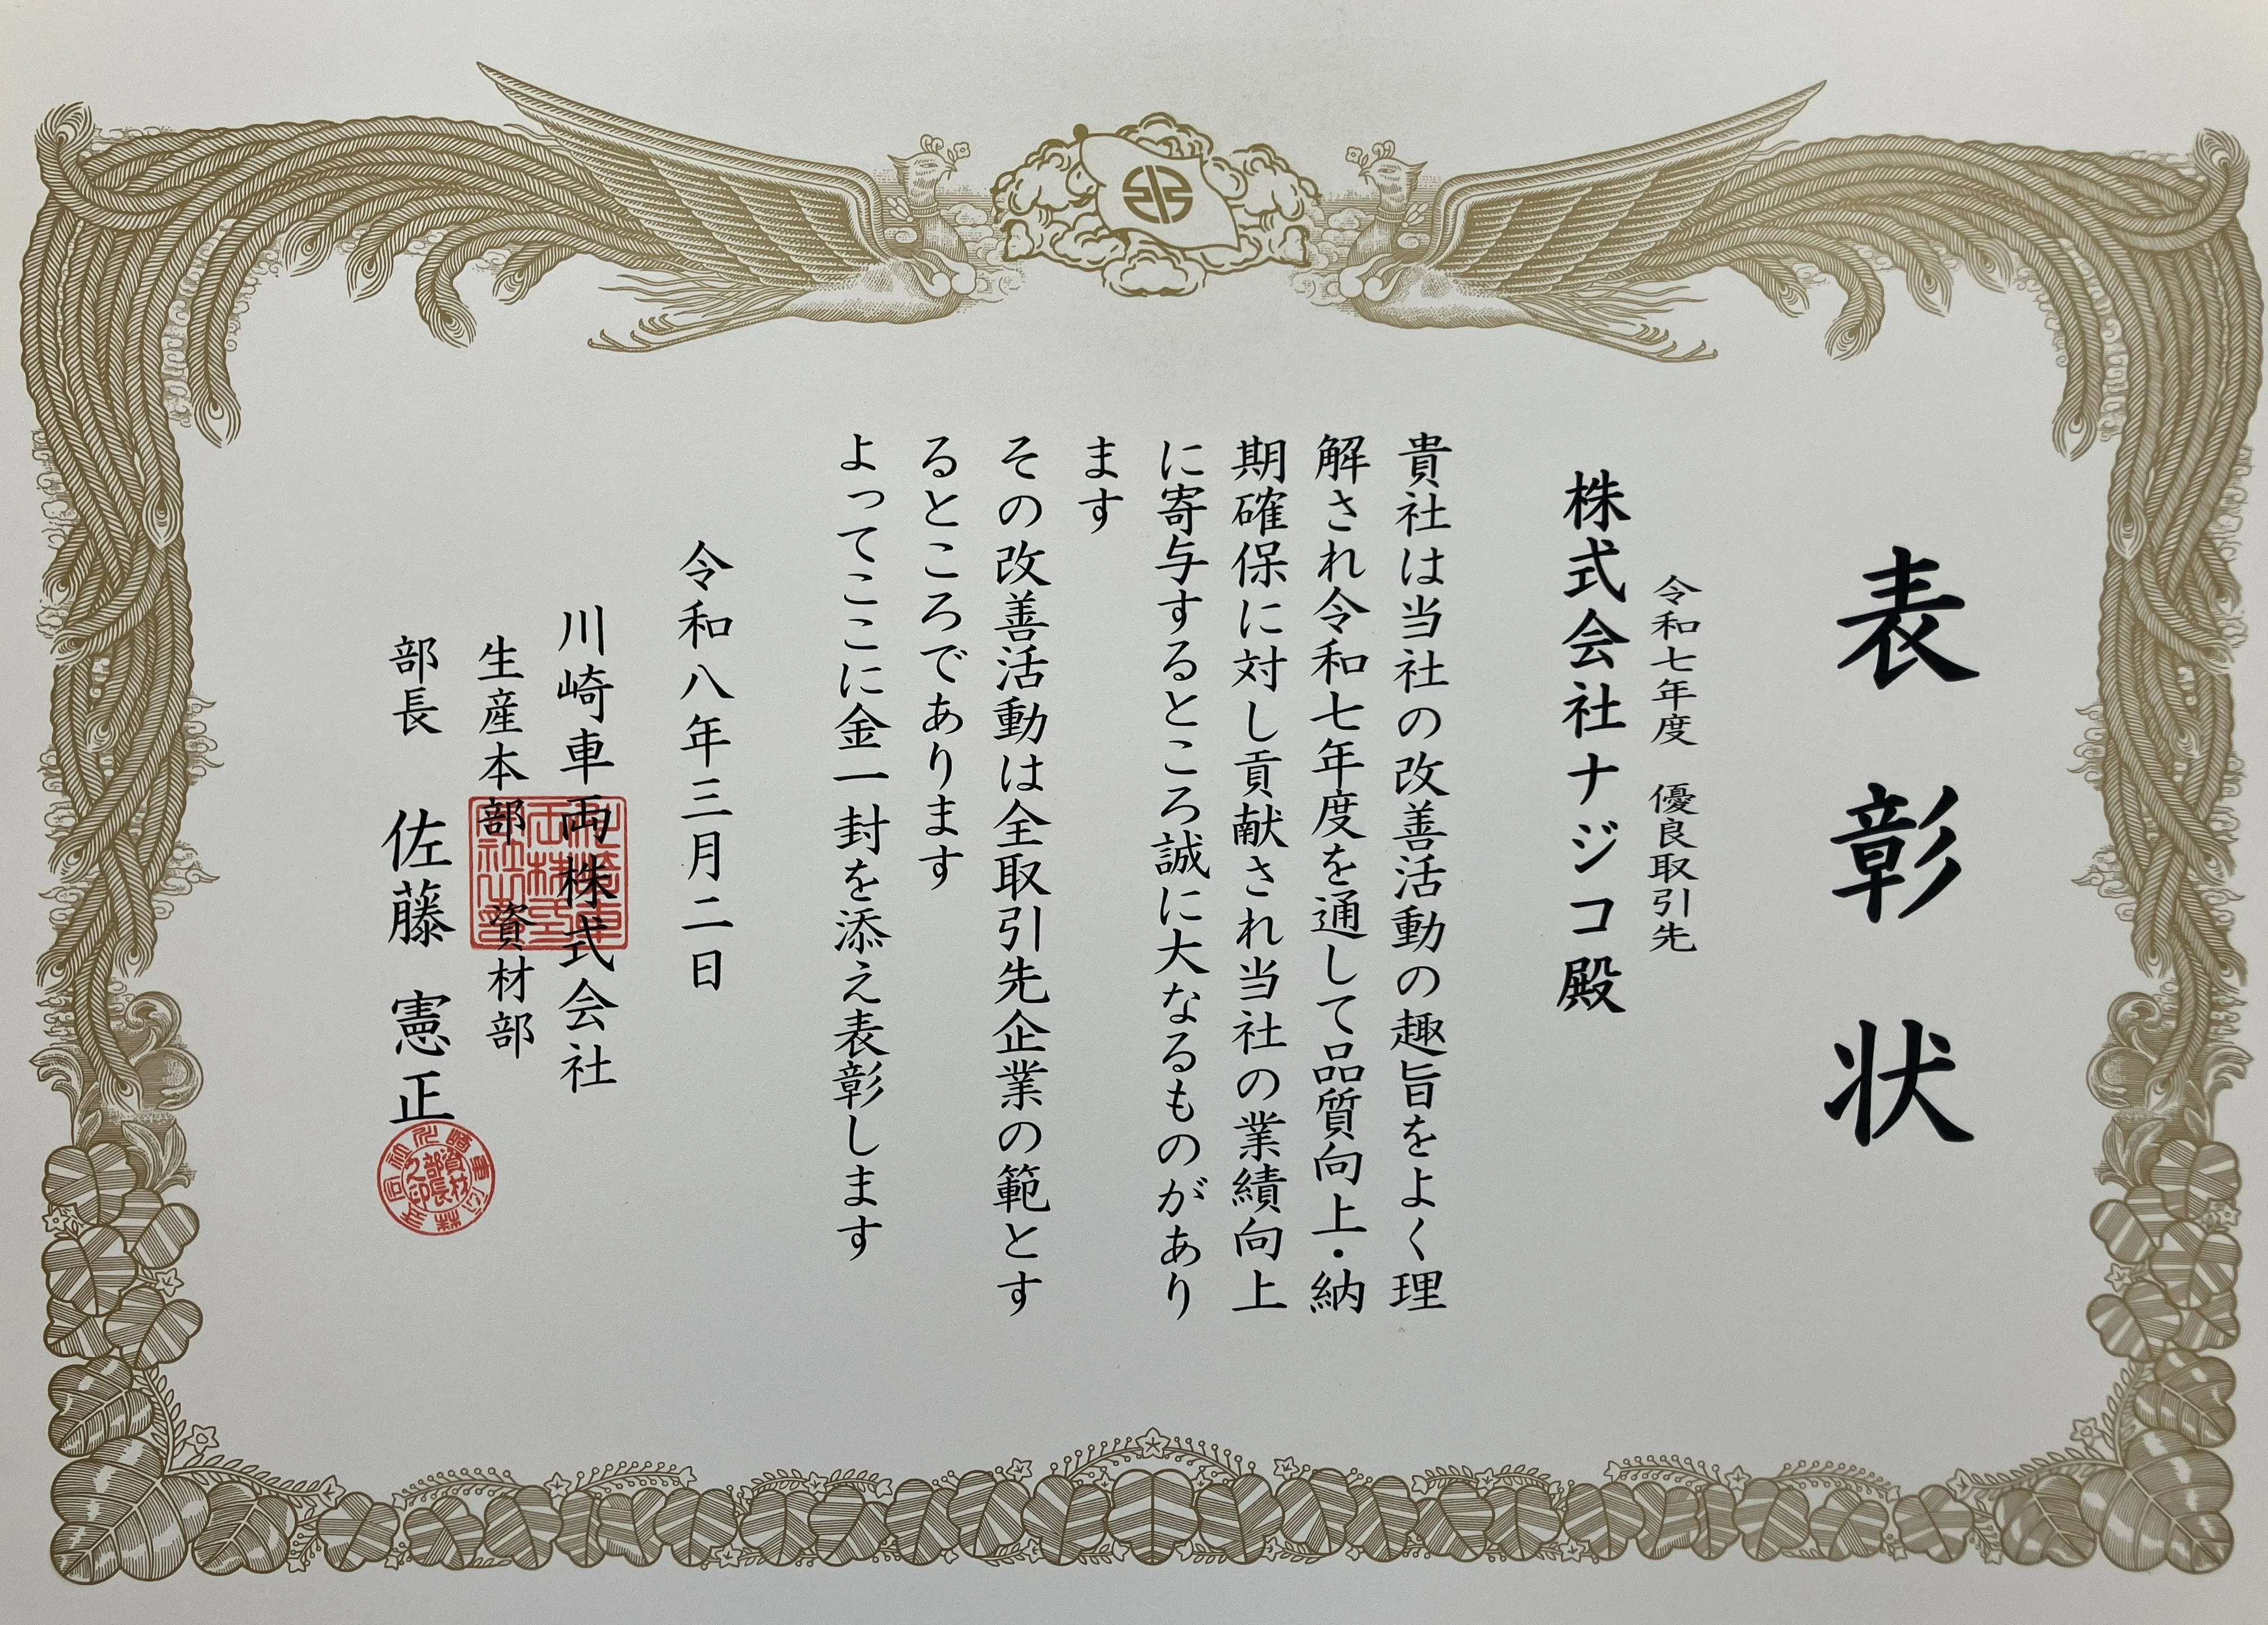 表彰状
令和七年度　優良取引先
株式会社ナジコ殿
貴社は当社の改善活動の趣旨をよく理
解され令和七年度を通して品質向上・納
期確保に対し貢献され当社の業績向上
に寄与するところ誠に大なるものがあり
ます
その改善活動は全取引先企業の範とす
るところであります
よってここに金一封を添え表彰します
令和八年三月二日
川崎車両株式会社
生産本部　資材部
部長　佐藤　憲正
資材
部長
之印